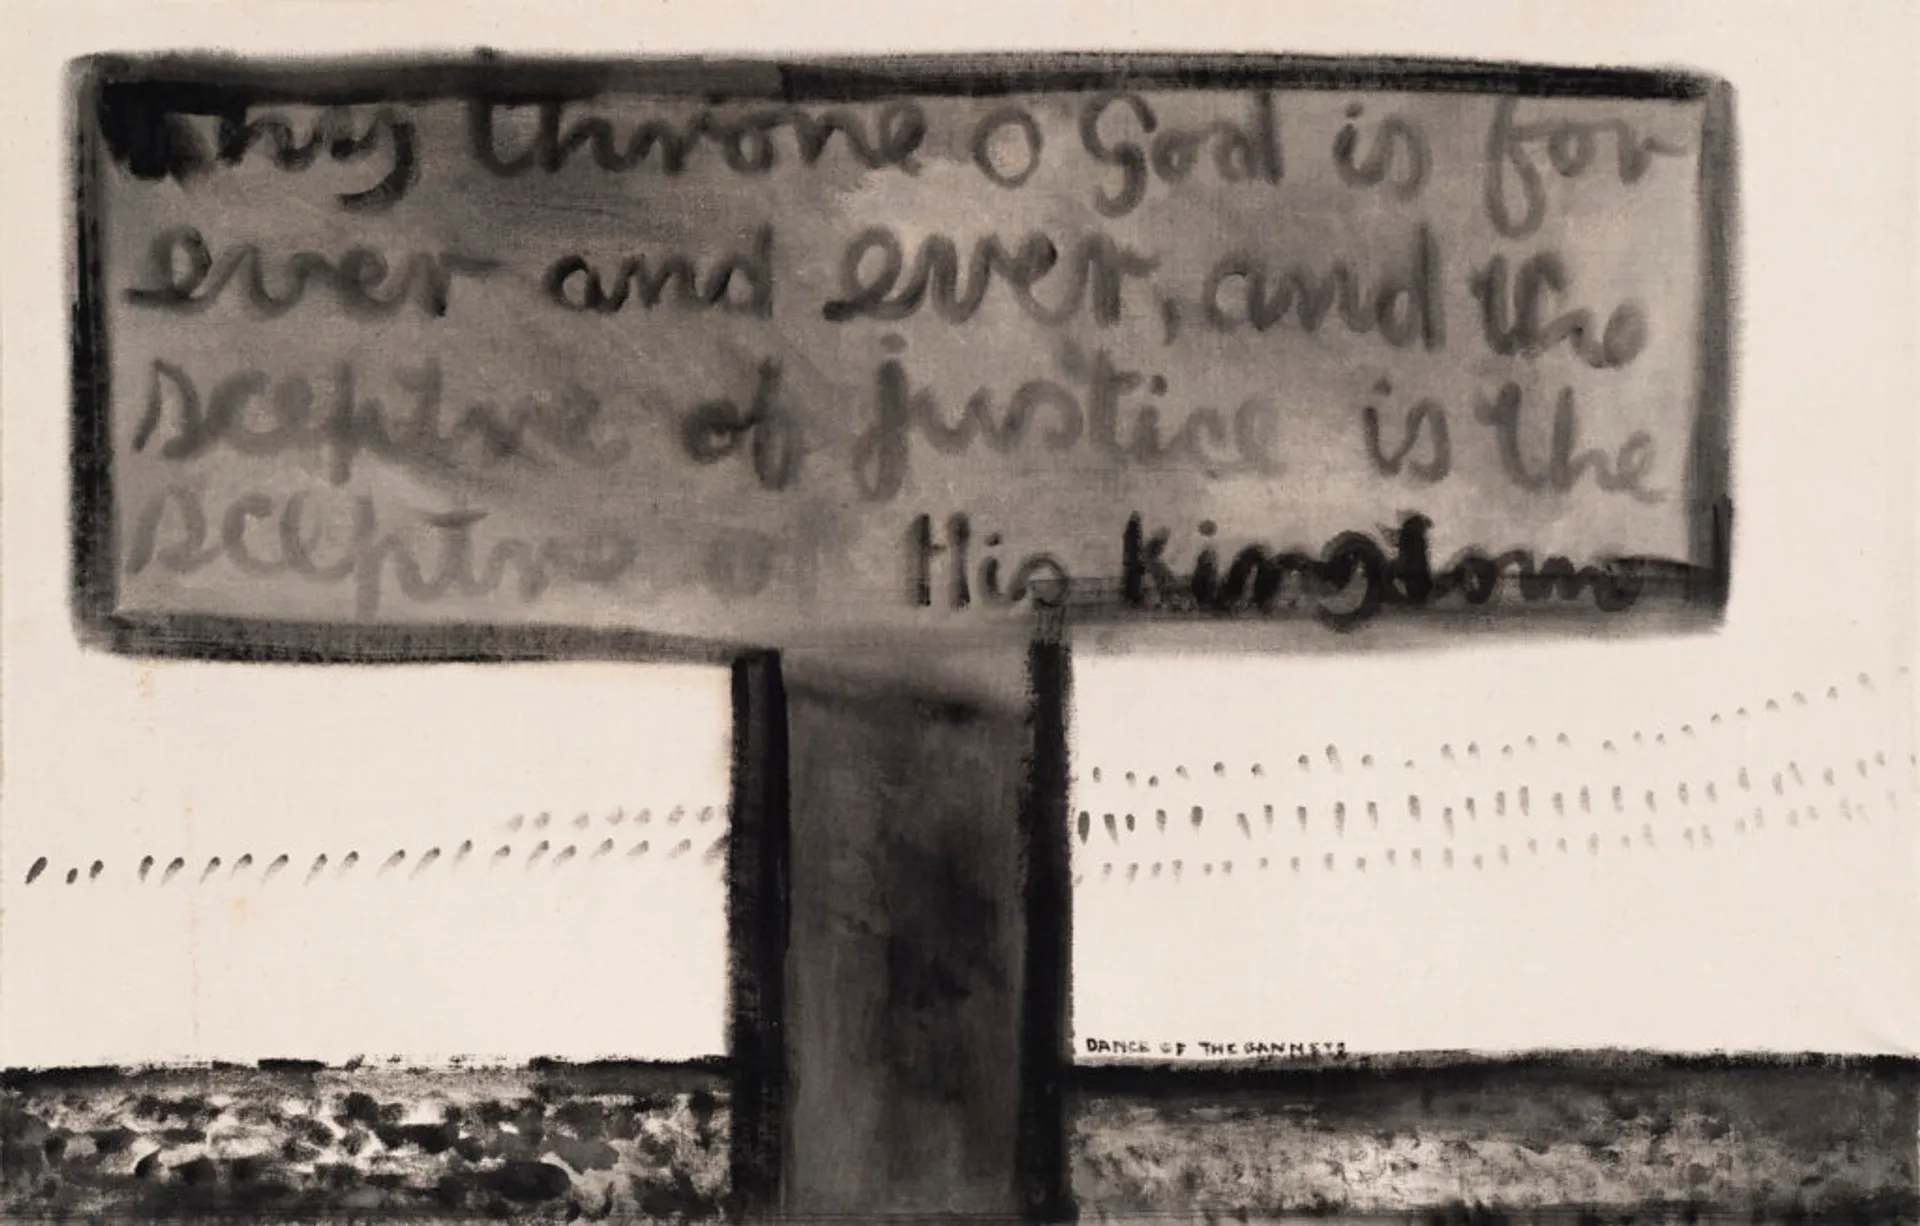 Thy throne O God is for
ever and ever, and the
sceptre of justice is the
sceptre of His kingdom
DANCE OF THE GANNETS